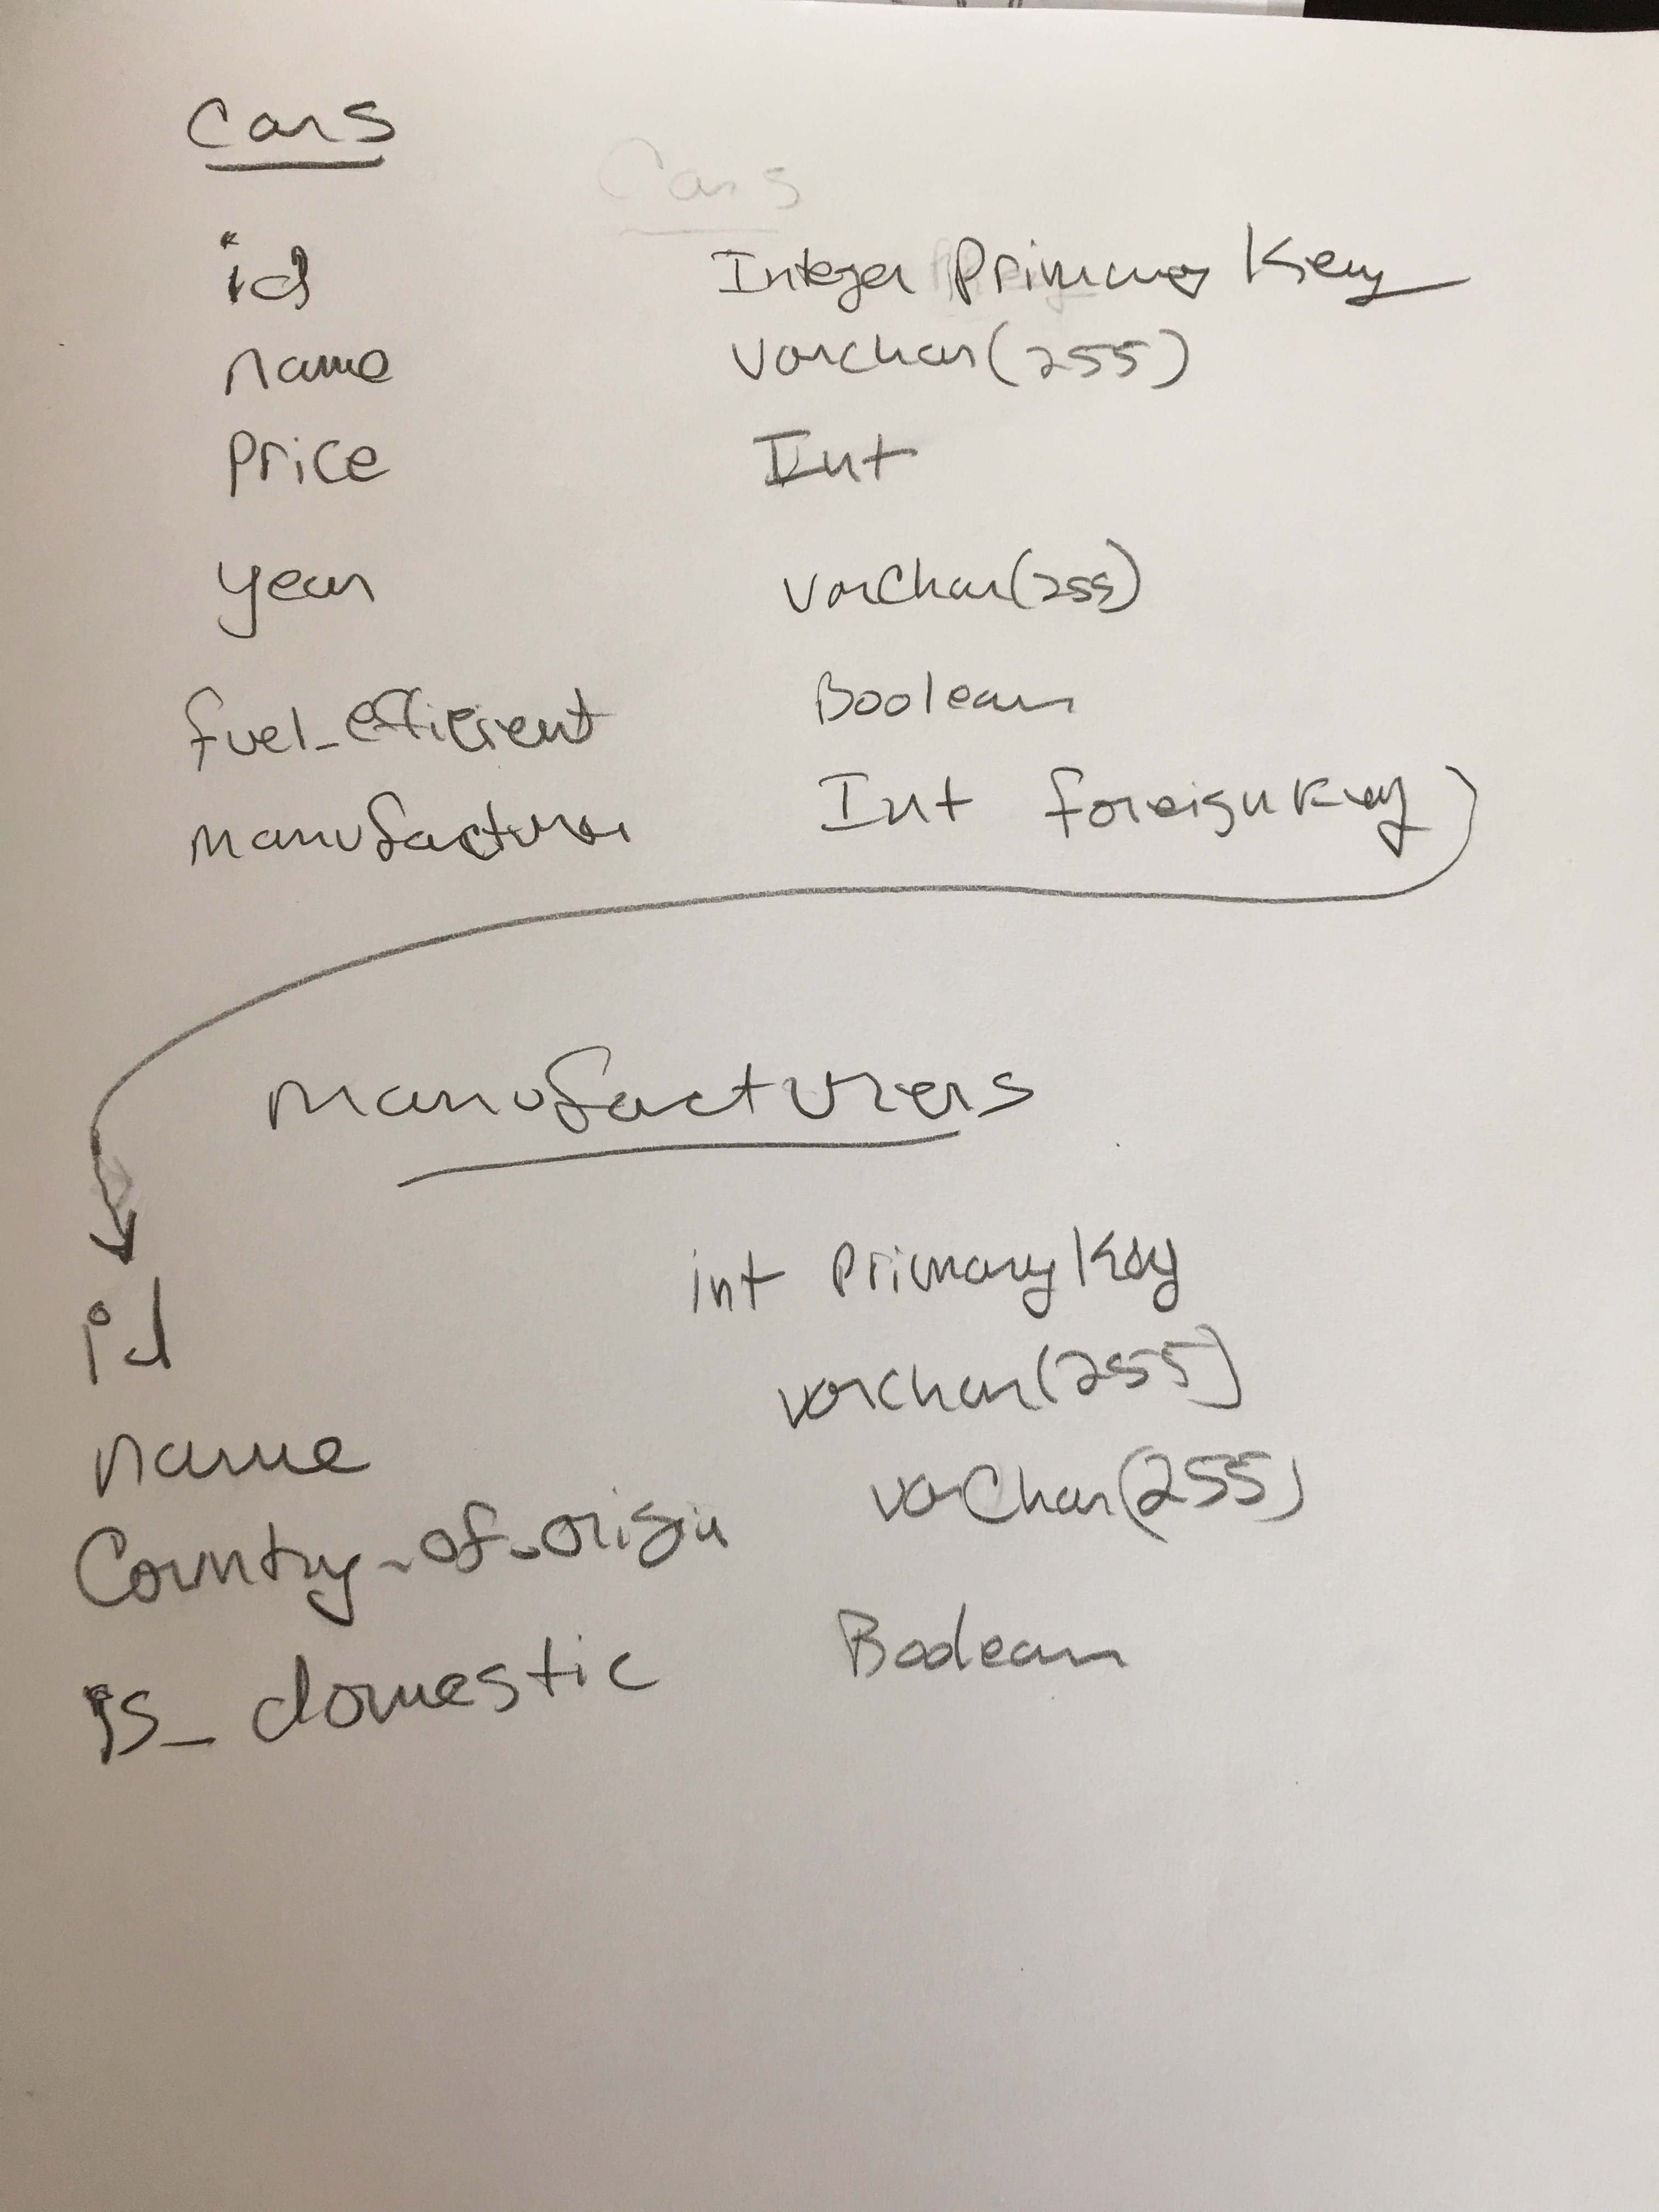 Cars
Cars
id Integer Primary Key
name Varchar(255)
Price Int
year VarChar(255)
fuel_efficient Boolean
manufacturer Int foreign Key
manufacturers
id int Primary Key
name varchar(255)
Country_of_origin varChar(255)
is_domestic Boolean